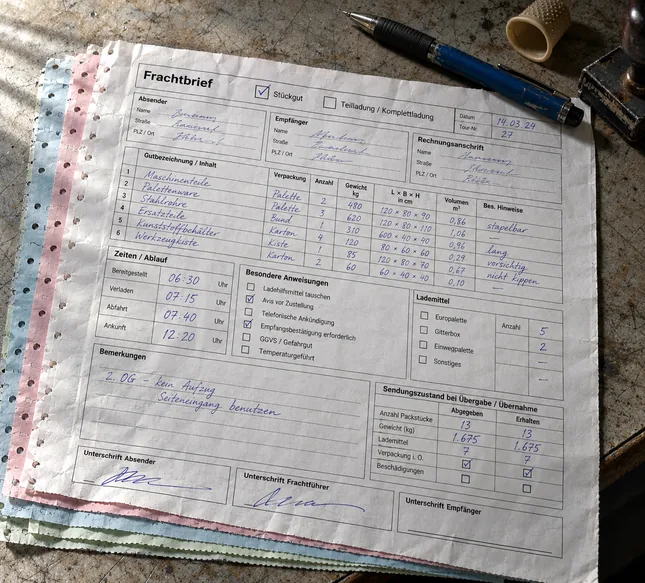 Frachtbrief
☑ Stückgut ☐ Teilladung / Komplettladung
Datum 14.03.24
Tour-Nr. 27
Absender
Name
Straße
PLZ / Ort
Empfänger
Name
Straße
PLZ / Ort
Rechnungsanschrift
Name
Straße
PLZ / Ort
Gutbezeichnung / Inhalt Verpackung Anzahl Gewicht kg L × B × H in cm Volumen m³ Bes. Hinweise
1 Maschinenteile Palette 2 480 120 × 80 × 90 0,86 stapelbar
2 Palettenware Palette 3 620 120 × 80 × 110 1,06
3 Stahlrohre Bund 1 310 600 × 40 × 40 0,96 lang
4 Ersatzteile Karton 4 120 80 × 60 × 60 0,29 vorsichtig
5 Kunststoffbehälter Kiste 1 85 120 × 80 × 70 0,67 nicht kippen
6 Werkzeugkiste Karton 2 60 60 × 40 × 40 0,10 —
Zeiten / Ablauf
Bereitgestellt 06:30 Uhr
Verladen 07:15 Uhr
Abfahrt 07:40 Uhr
Ankunft 12:20 Uhr
Besondere Anweisungen
☐ Ladehilfsmittel tauschen
☑ Avis vor Zustellung
☐ Telefonische Ankündigung
☑ Empfangsbestätigung erforderlich
☐ GGVS / Gefahrgut
☐ Temperaturgeführt
Lademittel
Anzahl
☐ Europalette 5
☐ Gitterbox 2
☐ Einwegpalette —
☐ Sonstiges —
Bemerkungen
2. OG – kein Aufzug
Seiteneingang benutzen
Sendungszustand bei Übergabe / Übernahme
Abgegeben Erhalten
Anzahl Packstücke 13 13
Gewicht (kg) 1.675 1.675
Lademittel 7 7
Verpackung i. O. ☑ ☑
Beschädigungen ☐ ☐
Unterschrift Absender
Unterschrift Frachtführer
Unterschrift Empfänger